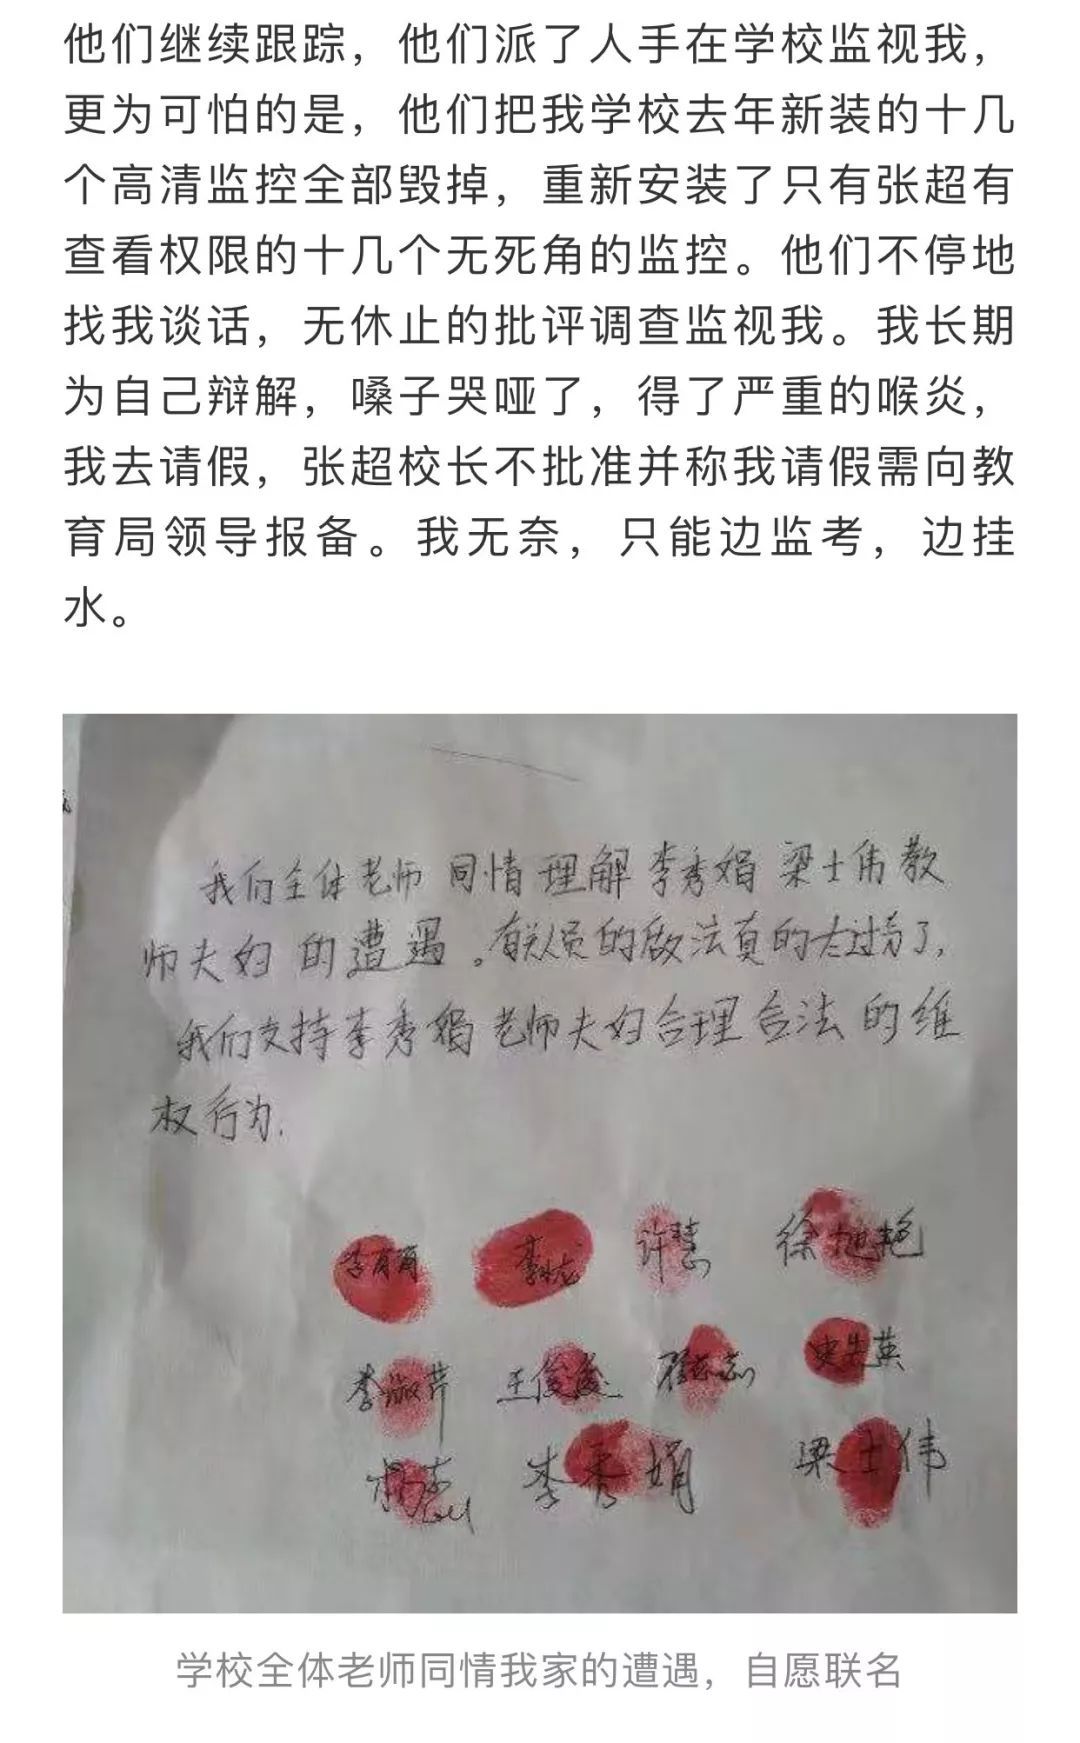 他们继续跟踪，他们派了人手在学校监视我，
更为可怕的是，他们把我学校去年新装的十几
个高清监控全部毁掉，重新安装了只有张超有
查看权限的十几个无死角的监控。他们不停地
找我谈话，无休止的批评调查监视我。我长期
为自己辩解，嗓子哭哑了，得了严重的喉炎，
我去请假，张超校长不批准并称我请假需向教
育局领导报备。我无奈，只能边监考，边挂
水。
我们全体老师同情理解李秀娟梁士伟教
师夫妇的遭遇。有关人员的做法真的太过分了，
我们支持李秀娟老师夫妇合理合法的维
权行为.
许慧 徐旭艳
李淑芹 王俊俊
李秀娟 梁士伟
学校全体老师同情我家的遭遇，自愿联名